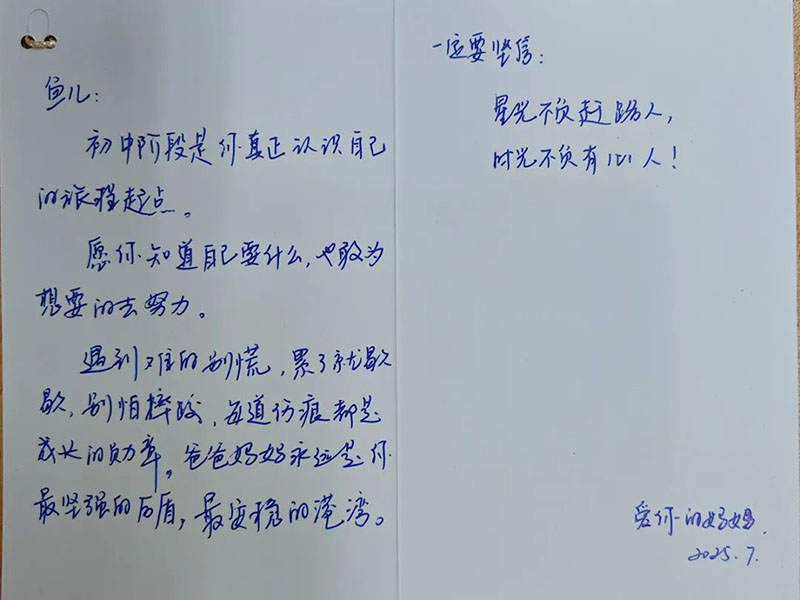 鱼儿：
初中阶段是你真正认识自己
的旅程起点。
愿你知道自己要什么，也敢为
想要的去努力。
遇到难的别慌，累了就歇
歇，别怕摔跤，每道伤痕都是
成长的勋章，爸爸妈妈永远是你
最坚强的后盾，最安稳的港湾。
一定要坚信：
星光不负赶路人，
时光不负有心人！
爱你的妈妈
2025.7.